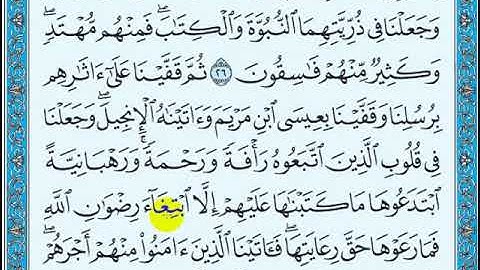 وَجَعَلْنَا فِى ذُرِّيَّتِهِمَا ٱلنُّبُوَّةَ وَٱلْكِتَٰبَ ۖ فَمِنْهُم مُّهْتَدٍ ۖ
وَكَثِيرٌ مِّنْهُمْ فَٰسِقُونَ ٢٦ ثُمَّ قَفَّيْنَا عَلَىٰٓ ءَاثَٰرِهِم
بِرُسُلِنَا وَقَفَّيْنَا بِعِيسَى ٱبْنِ مَرْيَمَ وَءَاتَيْنَٰهُ ٱلْإِنجِيلَ ۖ وَجَعَلْنَا
فِى قُلُوبِ ٱلَّذِينَ ٱتَّبَعُوهُ رَأْفَةً وَرَحْمَةً ۚ وَرَهْبَانِيَّةً
ٱبْتَدَعُوهَا مَا كَتَبْنَٰهَا عَلَيْهِمْ إِلَّا ٱبْتِغَآءَ رِضْوَٰنِ ٱللَّهِ
فَمَا رَعَوْهَا حَقَّ رِعَايَتِهَا ۖ فَـَٔاتَيْنَا ٱلَّذِينَ ءَامَنُوا۟ مِنْهُمْ أَجْرَهُمْ ۖ